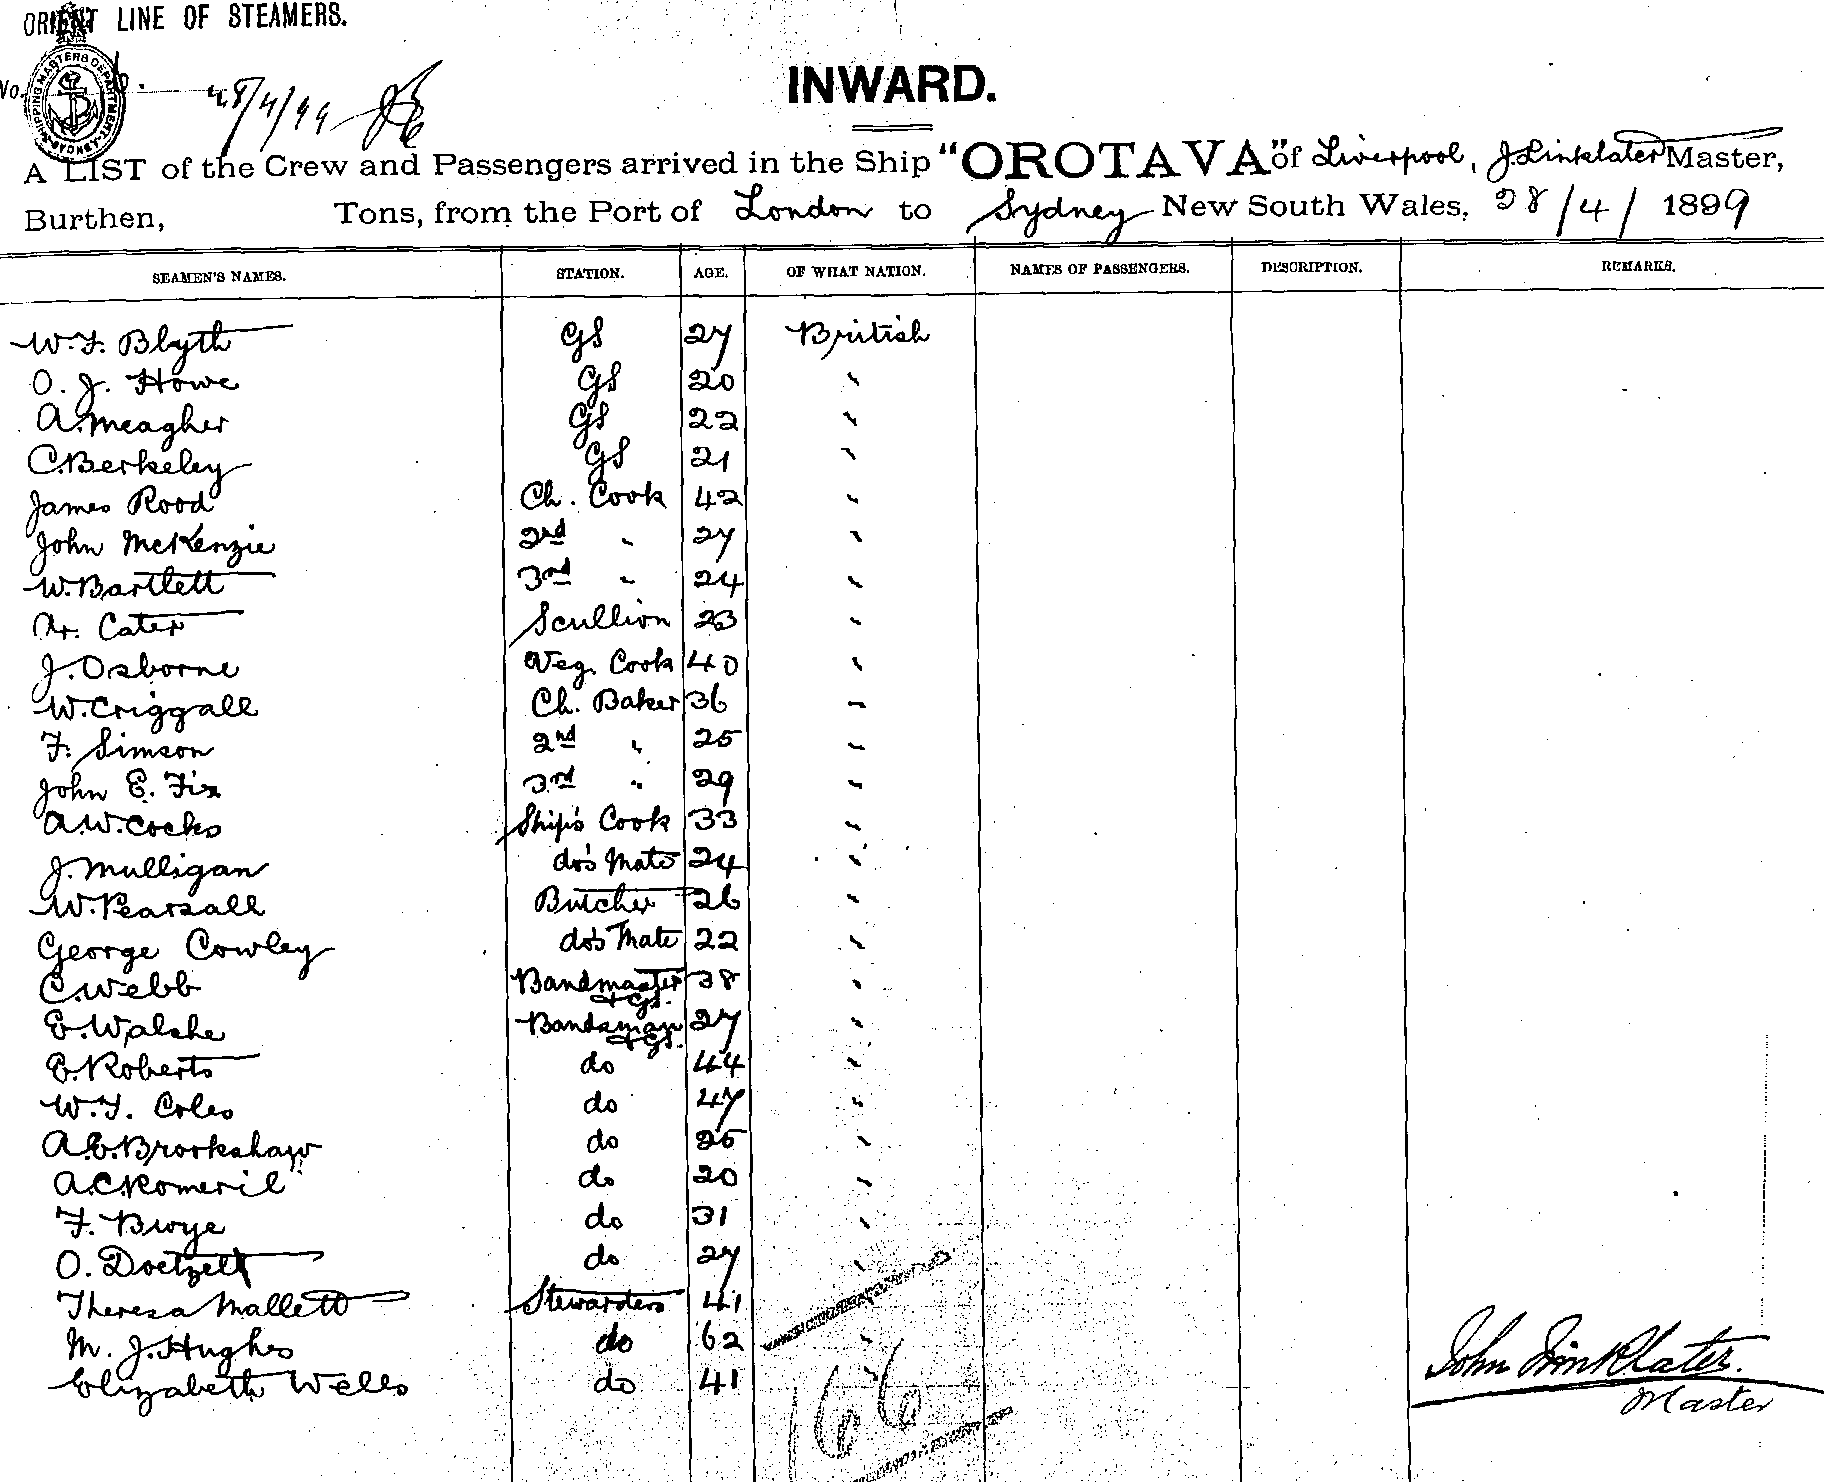 ORIENT LINE OF STEAMERS.
SHIPPING MASTERS DEPARTMENT SYDNEY
No.
28/4/99
INWARD.
A LIST of the Crew and Passengers arrived in the Ship "OROTAVA" of Liverpool, J. Linklater Master,
Burthen, Tons, from the Port of London to Sydney New South Wales, 28/4/1899
SEAMEN'S NAMES. STATION. AGE. OF WHAT NATION. NAMES OF PASSENGERS. DESCRIPTION. REMARKS.
W. F. Blyth GS 27 British
O. J. Howe GS 20 "
A. Meagher GS 22 "
C. Berkeley GS 21 "
James Rood Ch. Cook 42 "
John McKenzie 2nd " 27 "
W. Bartlett 3rd " 24 "
Cater Scullion 23 "
J. Osborne Veg. Cook 40 "
W. Criggall Ch. Baker 36 "
F. Simson 2nd " 25 "
John E. Fix 3rd " 29 "
A. W. Cocks Ship's Cook 33 "
J. Mulligan do's Mate 24 "
W. Pearsall Butcher 26 "
George Cowley do's Mate 22 "
C. Webb Bandmaster & GS. 38 "
E. Walshe Bandsman & GS. 27 "
E. Roberts do 44 "
W. T. Coles do 47 "
A. E. Brookshaw do 25 "
A. C. Romeril do 20 "
F. Bwye do 31 "
O. Doetzelt do 27 "
Theresa Mallett Stewardess 41 "
M. J. Hughes do 62 "
Elizabeth Wells do 41 "
166
John Linklater.
Master